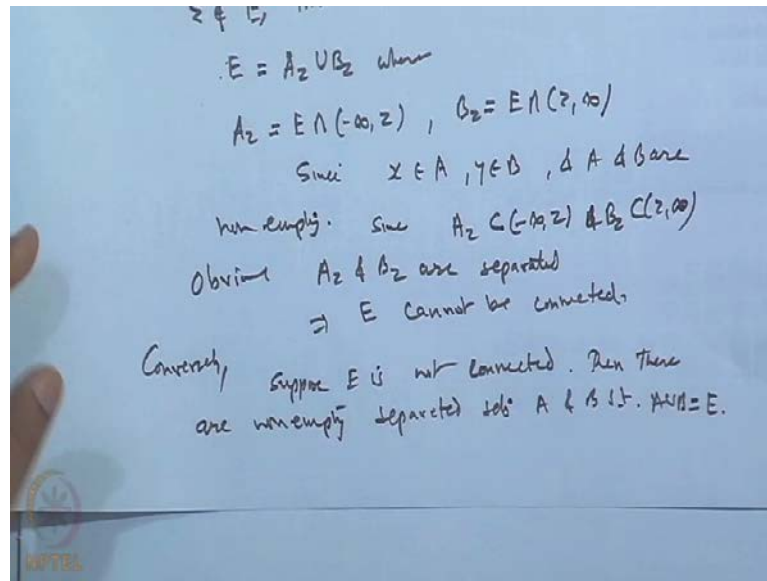 z ∉ E,
E = A_z ∪ B_z where
A_z = E ∩ (-∞, z) , B_z = E ∩ (z, ∞)
Since x ∈ A , y ∈ B , & A & B are
non empty. Since A_z ⊂ (-∞, z) & B_z ⊂ (z, ∞)
Obvious A_z & B_z are separated
⇒ E cannot be connected.
Conversely, Suppose E is not connected. Then there
are nonempty separated sets A & B s.t. A∪B = E.
NPTEL